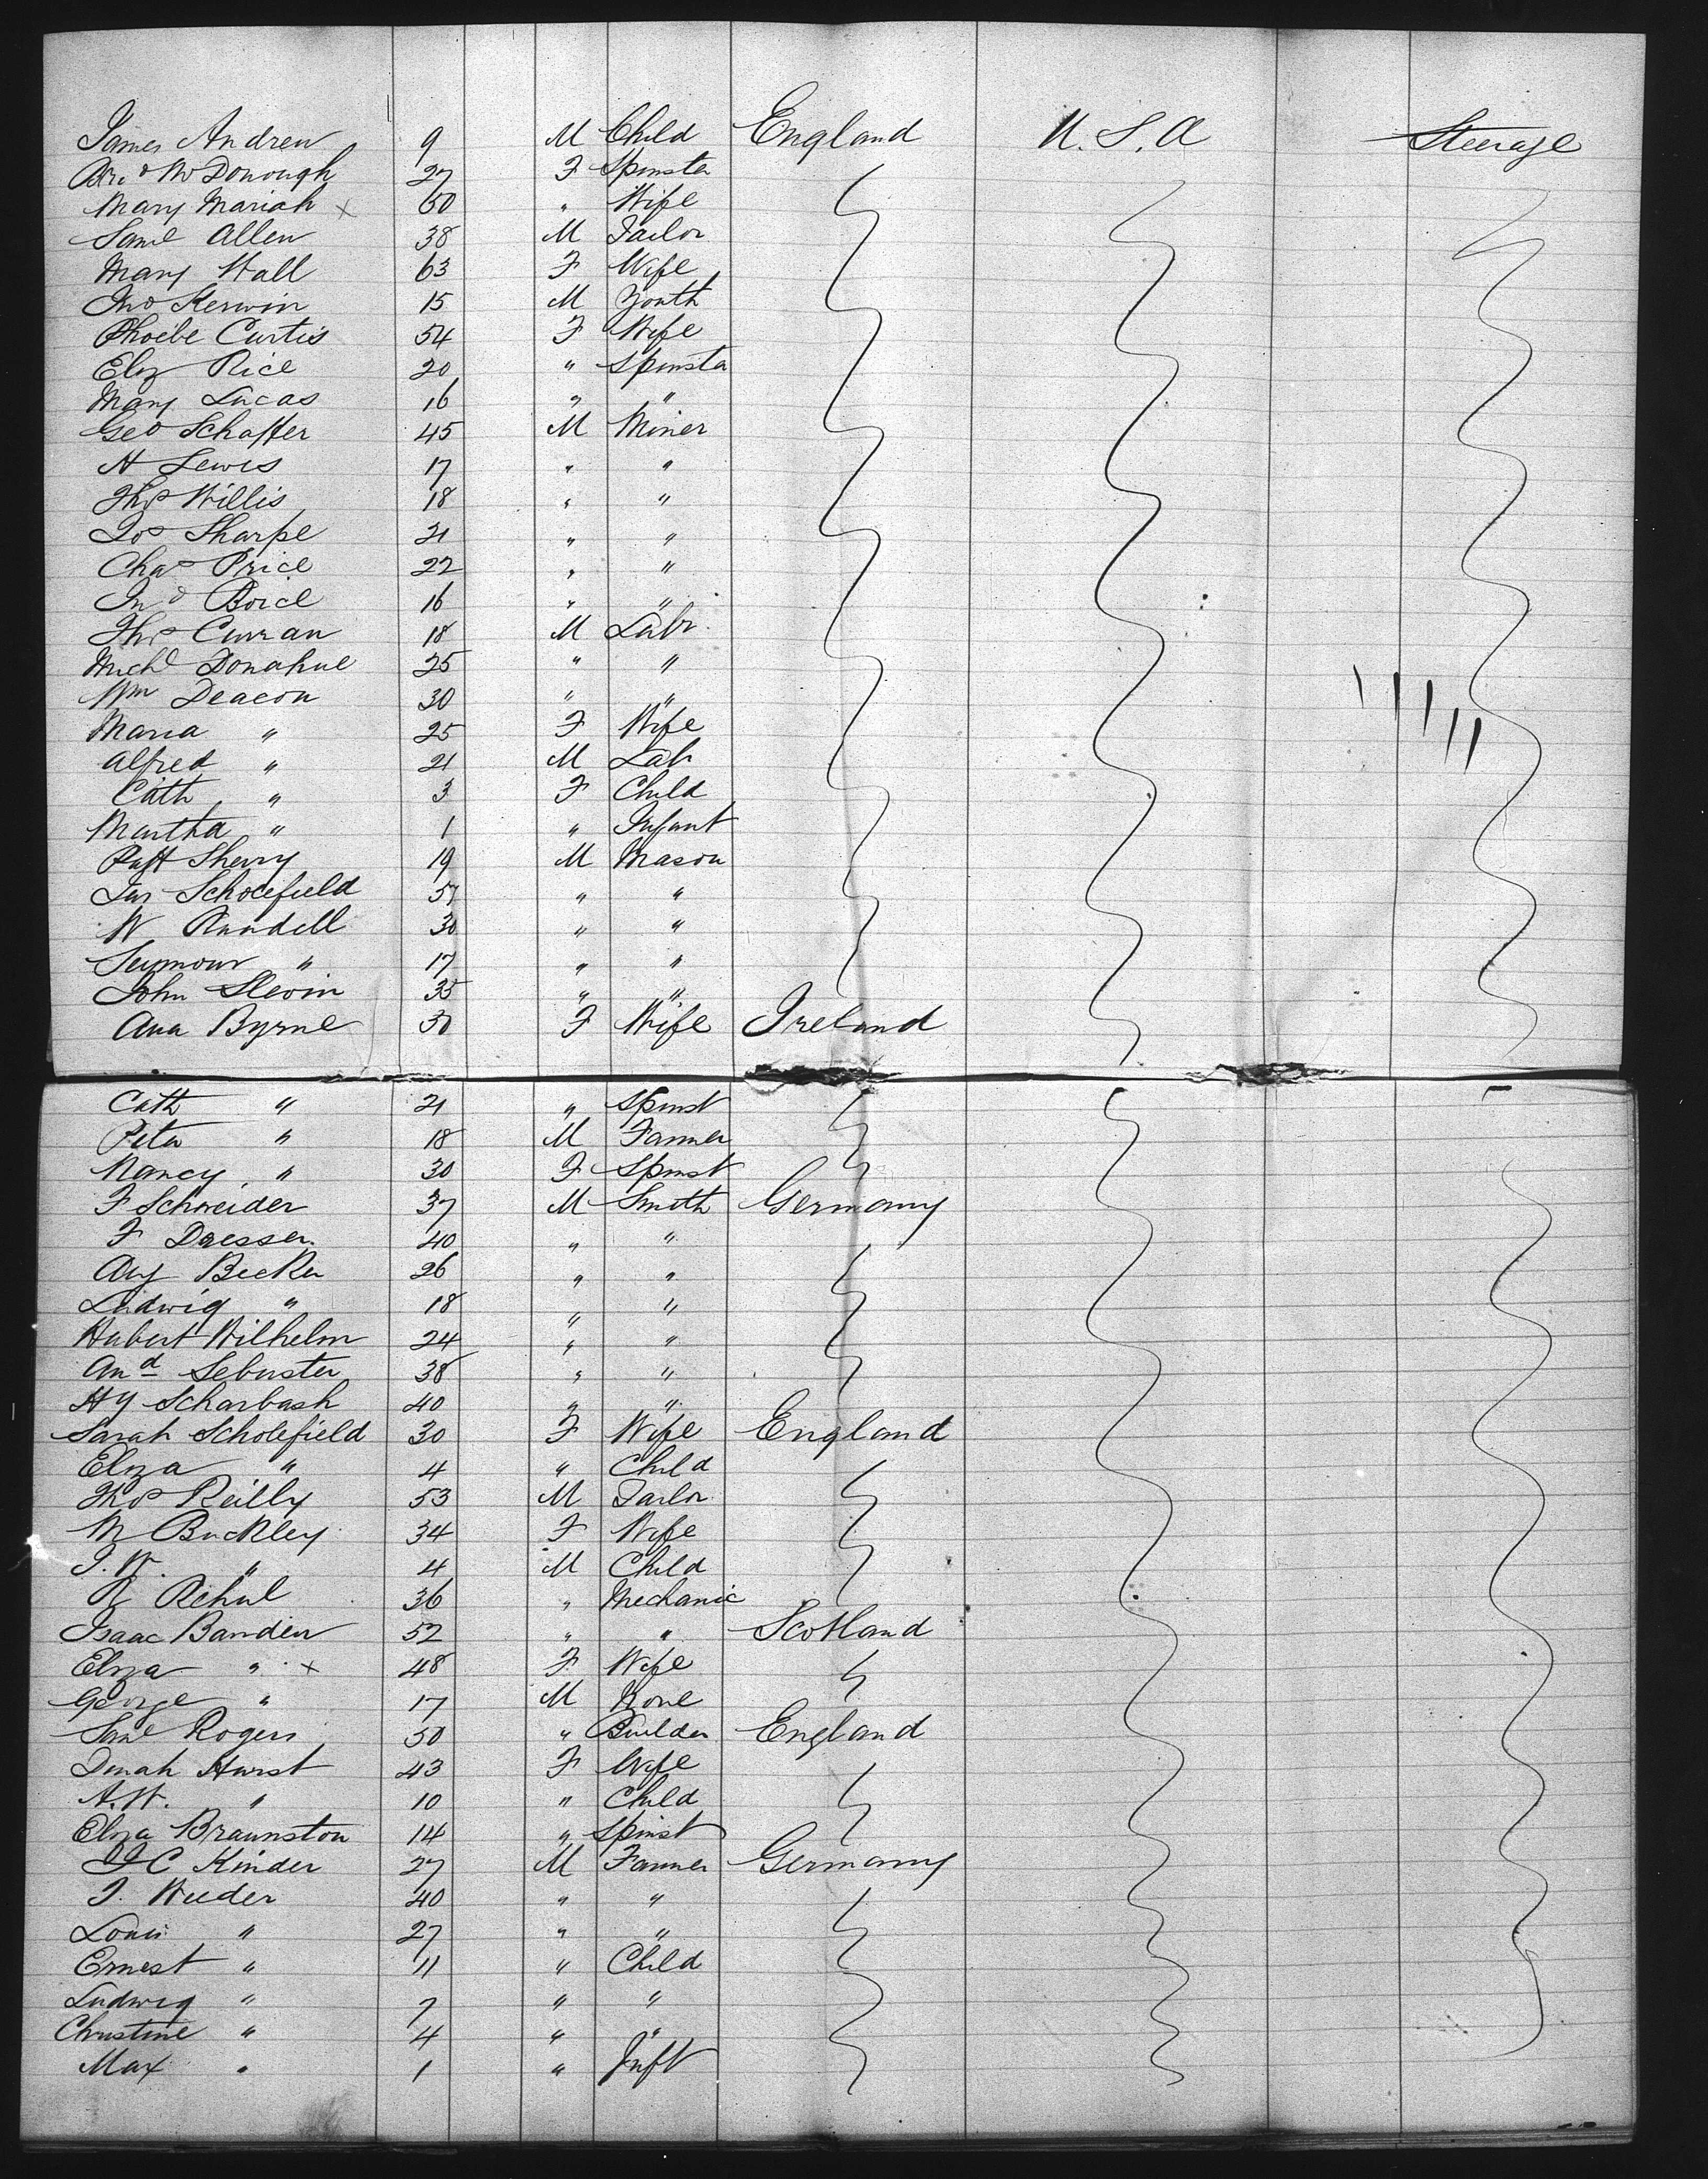 James Andrew 9 M Child England U.S.A Steerage
Brd McDonough 27 F Spinster
Mary Mariah x 60 " Wife
Saml Allen 38 M Tailor
Mary Wall 63 F Wife
Jno Kerwin 15 M Youth
Phoebe Curtis 54 F Wife
Eliz Rice 20 " Spinster
Mary Lucas 16 " "
Geo Schaffer 45 M Miner
H Lewis 17 " "
Thos Willis 18 " "
Jos Sharpe 21 " "
Chas Price 22 " "
Jno Boice 16 " "
Thos Curran 18 M Labr
Michl Donahue 25 " "
Wm Deacon 30 " "
Maria " 25 F Wife
Alfred " 21 M Lab
Cath " 3 F Child
Martha " 1 " Infant
Patt Sherry 19 M Mason
Jas Scholefield 57 " "
W Rundell 30 " "
Seymour " 17 " "
John Slevin 35 " "
Ann Byrne 30 F Wife Ireland
Cath " 21 " Spinst
Peter " 18 M Farmer
Nancy " 30 F Spinst
F Schneider 37 M Smith Germany
F Dresser 40 " "
Aug Becker 26 " "
Ludwig " 18 " "
Hubert Wilhelm 24 " "
And Sebuster 38 " "
Hy Scharbash 40 " "
Sarah Scholefield 30 F Wife England
Eliza " 4 " Child
Thos Reilly 53 M Tailor
M Buckley 34 F Wife
J.W. " 4 M Child
R Rehul 36 " Mechanic
Isaac Barnden 52 " " Scotland
Eliza " x 48 F Wife
George " 17 M None
Saml Rogers 50 " Builder England
Dinah Hurst 43 F Wife
A.W. " 10 " Child
Eliza Braunston 14 " Spinst
J C Kinder 27 M Farmer Germany
J. Weeder 40 " "
Louis " 27 " "
Ernest " 11 " Child
Ludwig " 7 " "
Christine " 4 " "
Max " 1 " Inft